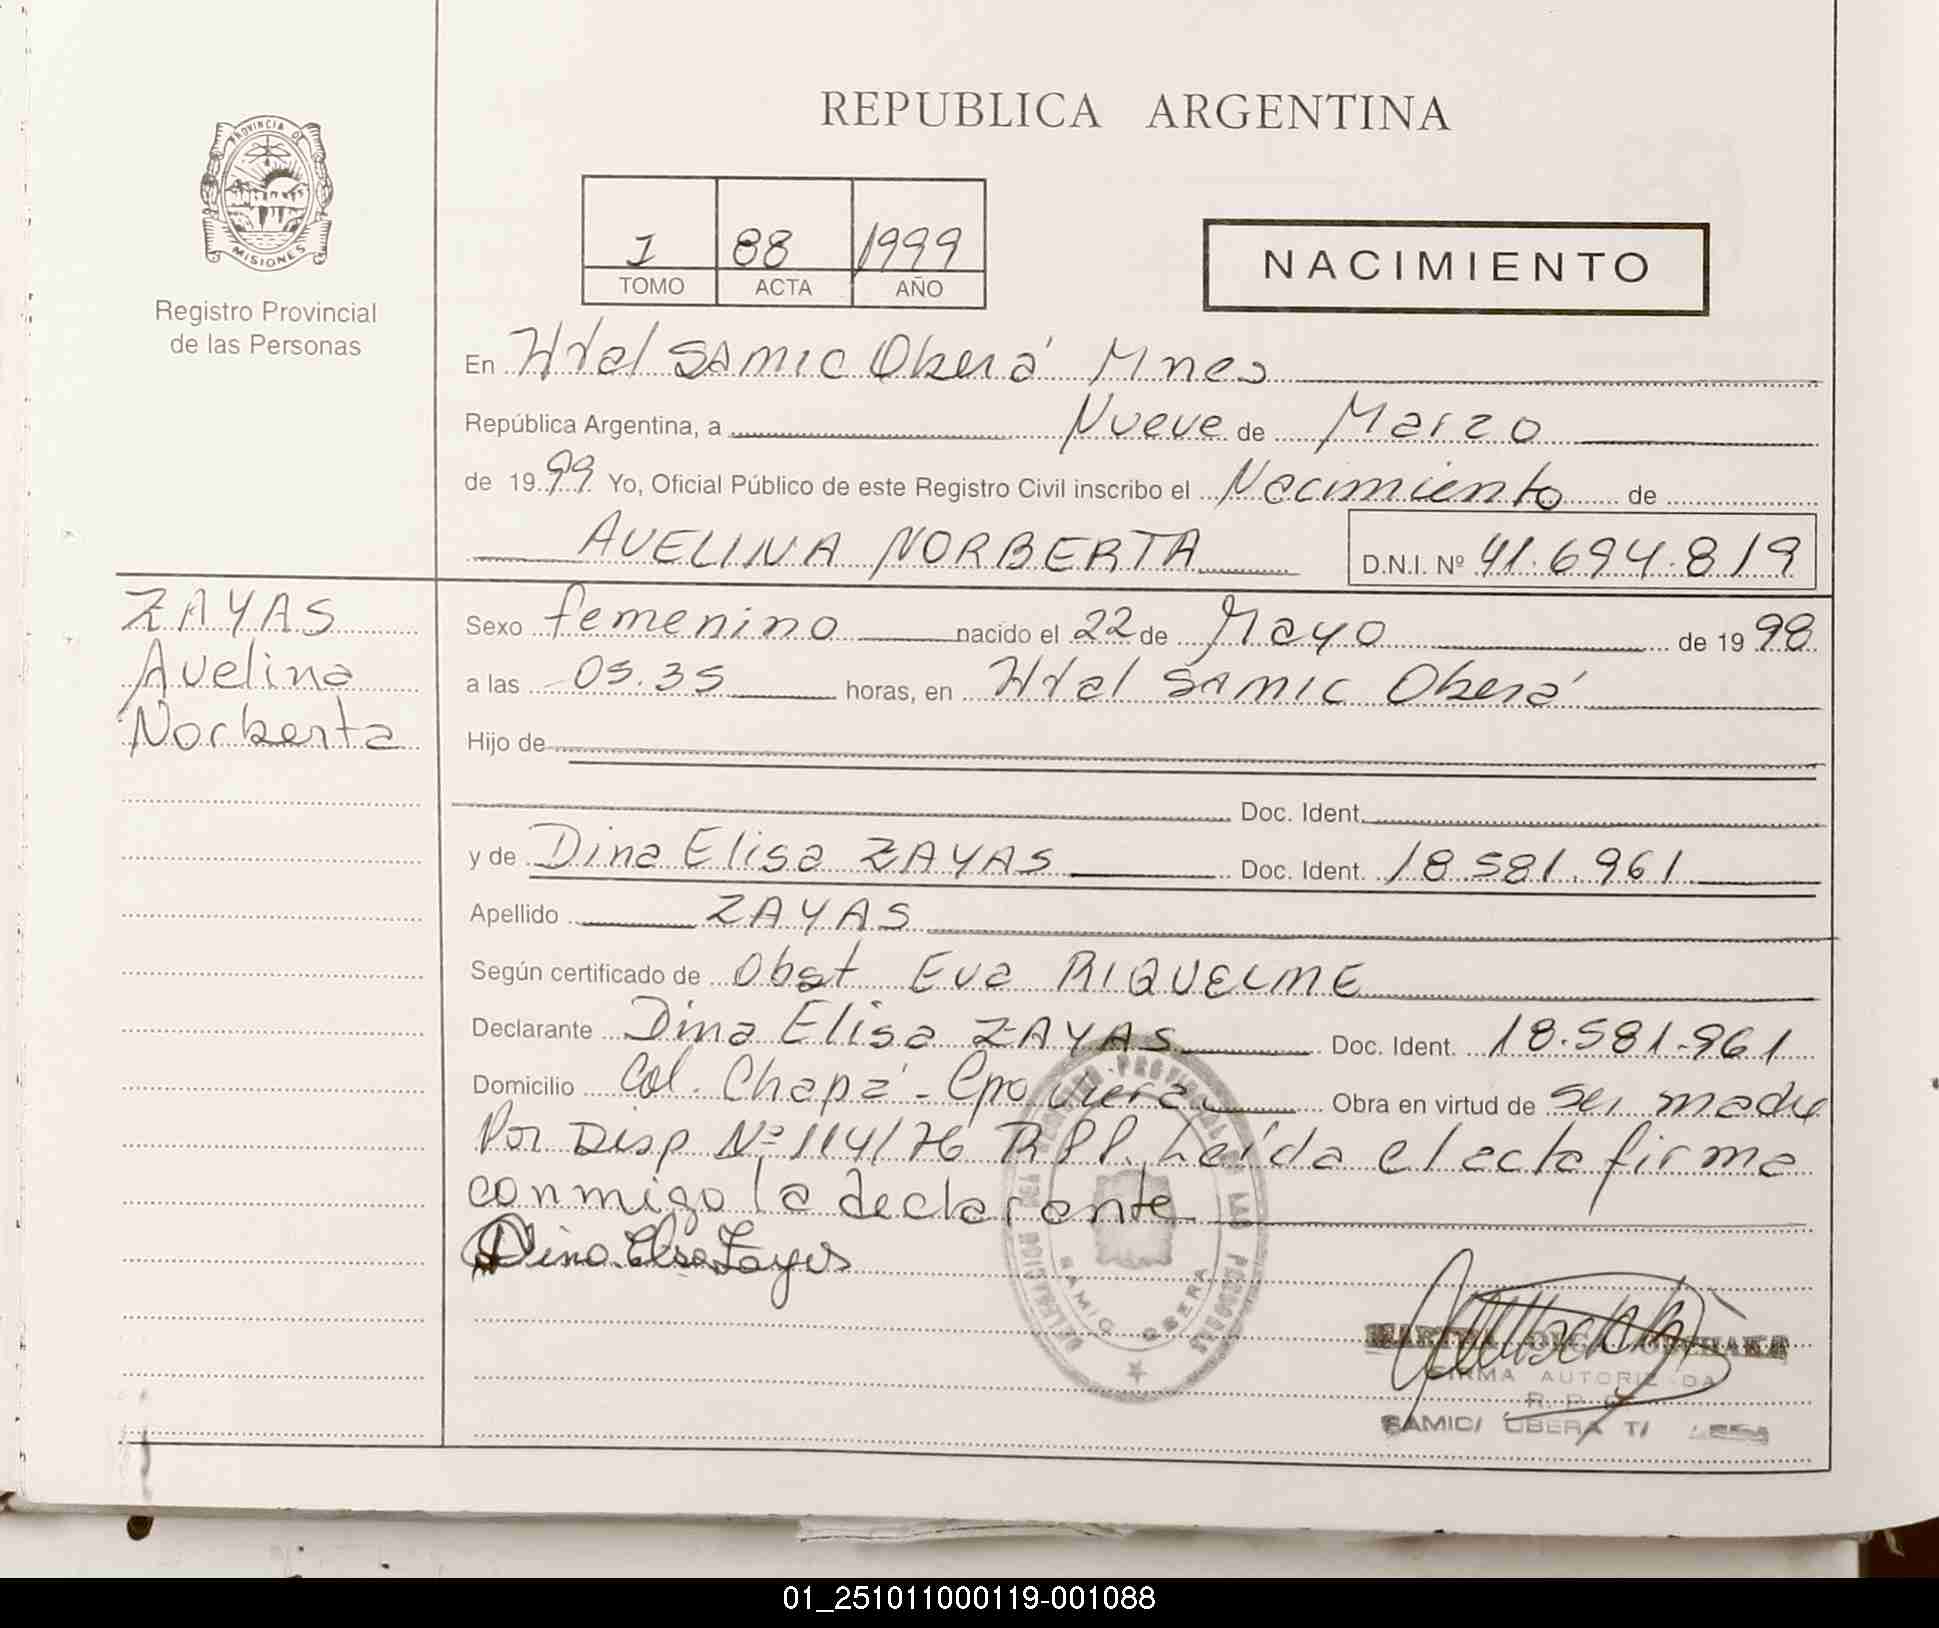 REPUBLICA ARGENTINA
PROVINCIA DE
MISIONES
Registro Provincial
de las Personas
1 88 1999
TOMO ACTA AÑO
NACIMIENTO
En Htal SAMIC Oberá Mnes
República Argentina, a Nueve de Marzo
de 1999 Yo, Oficial Público de este Registro Civil inscribo el Nacimiento de
AVELINA NORBERTA D.N.I. Nº 41.694.819
ZAYAS
Avelina
Norberta
Sexo femenino nacido el 22 de Mayo de 1998
a las 05.35 horas, en Htal SAMIC Oberá
Hijo de
Doc. Ident.
y de Dina Elisa ZAYAS Doc. Ident. 18.581.961
Apellido ZAYAS
Según certificado de Obst Eva RIQUELME
Declarante Dina Elisa ZAYAS Doc. Ident. 18.581.961
Domicilio Col. Chapá - Cpo Viera Obra en virtud de ser madre
Por Disp Nº 114/76 RPP. Leída el acta firma
conmigo la declarante
Dina Elisa Zayas
DELEGACION DEL REGISTRO PROVINCIAL DE LAS PERSONAS
SAMIC OBERA
FIRMA AUTORIZADA
SAMIC/ OBERA
01_251011000119-001088